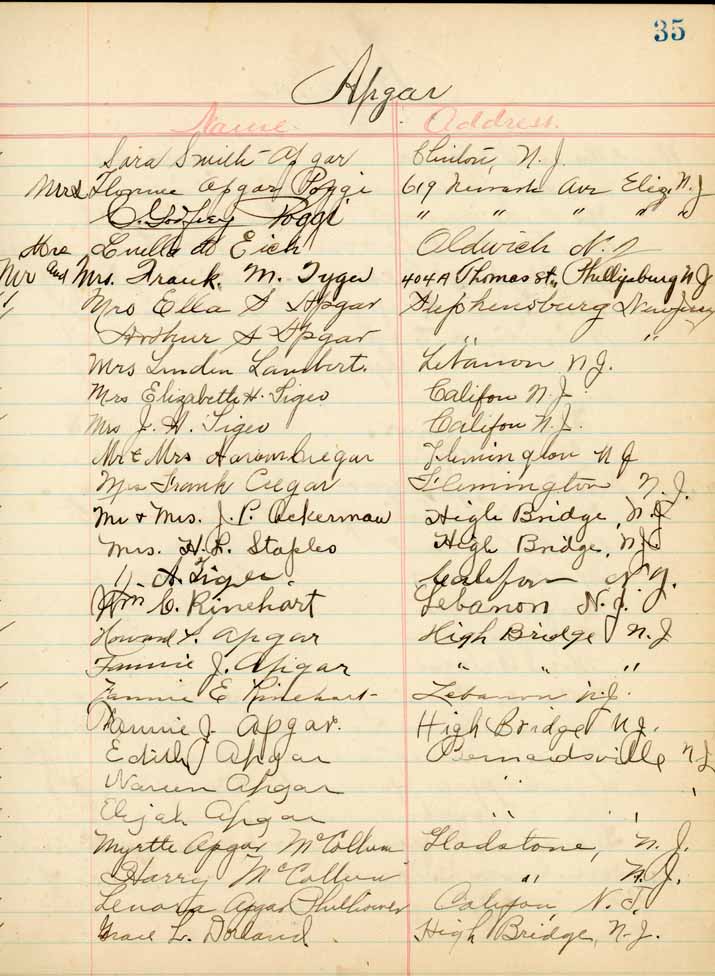 35
Apgar
Name. Address.
Sara Smith Apgar Clinton, N. J.
Mrs Florence Apgar Poggi 619 Newark Ave Eliz, N. J
C. Godfrey Poggi " " " " "
Mrs Luella Eick Oldwick N. J
Mr and Mrs. Frank. M. Tyger 404A Thomas St., Phillipsburg N J
Mrs Ella S Apgar Stephensburg New Jersey
Arthur S Apgar " "
Mrs Linden Lambert. Lebanon N J.
Mrs Elizabeth H. Tiger Califon N J
Mrs J. H. Tiger Califon N. J.
Mr & Mrs Aaron Cregar Flemington N J
Mrs Frank Cregar Flemington N. J.
Mr & Mrs. J. P. Ackerman High Bridge, N. J.
Mrs. H. L. Staples High Bridge, N. J.
A. Tiger. Califon N. J.
Wm C. Rinehart Lebanon N. J.
Howard Apgar High Bridge N. J
Fannie J. Apgar " " "
Fannie E Rinehart Lebanon N. J.
J. Apgar. High Bridge N. J.
Edith Apgar Bernardsville N J
Warren Apgar " '
Elijah Apgar " '
Myrtle Apgar McCollum Gladstone, N. J.
Harry McCollum " N. J.
Lenora Apgar Philhower Califon, N. J.
Grace L. Dorland High Bridge, N. J.